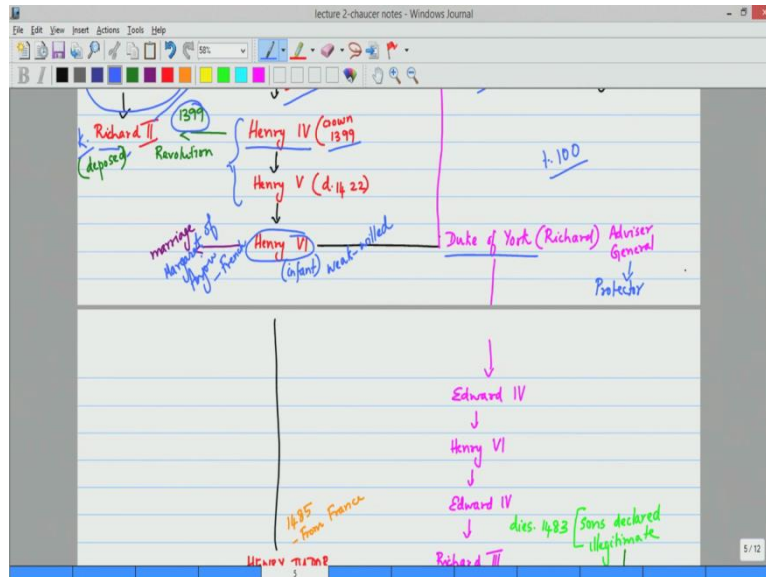 lecture 2-chaucer notes - Windows Journal
File Edit View Insert Actions Tools Help
58%
B I
k. Richard II
(deposed)
1399
Revolution
Henry IV (crown
1399
Henry V (d. 1422)
1.100
marriage
Margaret of
Anjou - French
Henry VI
(infant) weak-willed
Duke of York (Richard) Adviser
General
Protector
Edward IV
Henry VI
Edward IV
dies. 1483 [sons declared
illegitimate
Richard III
1485
- From France
HENRY TUDOR
5/12
5